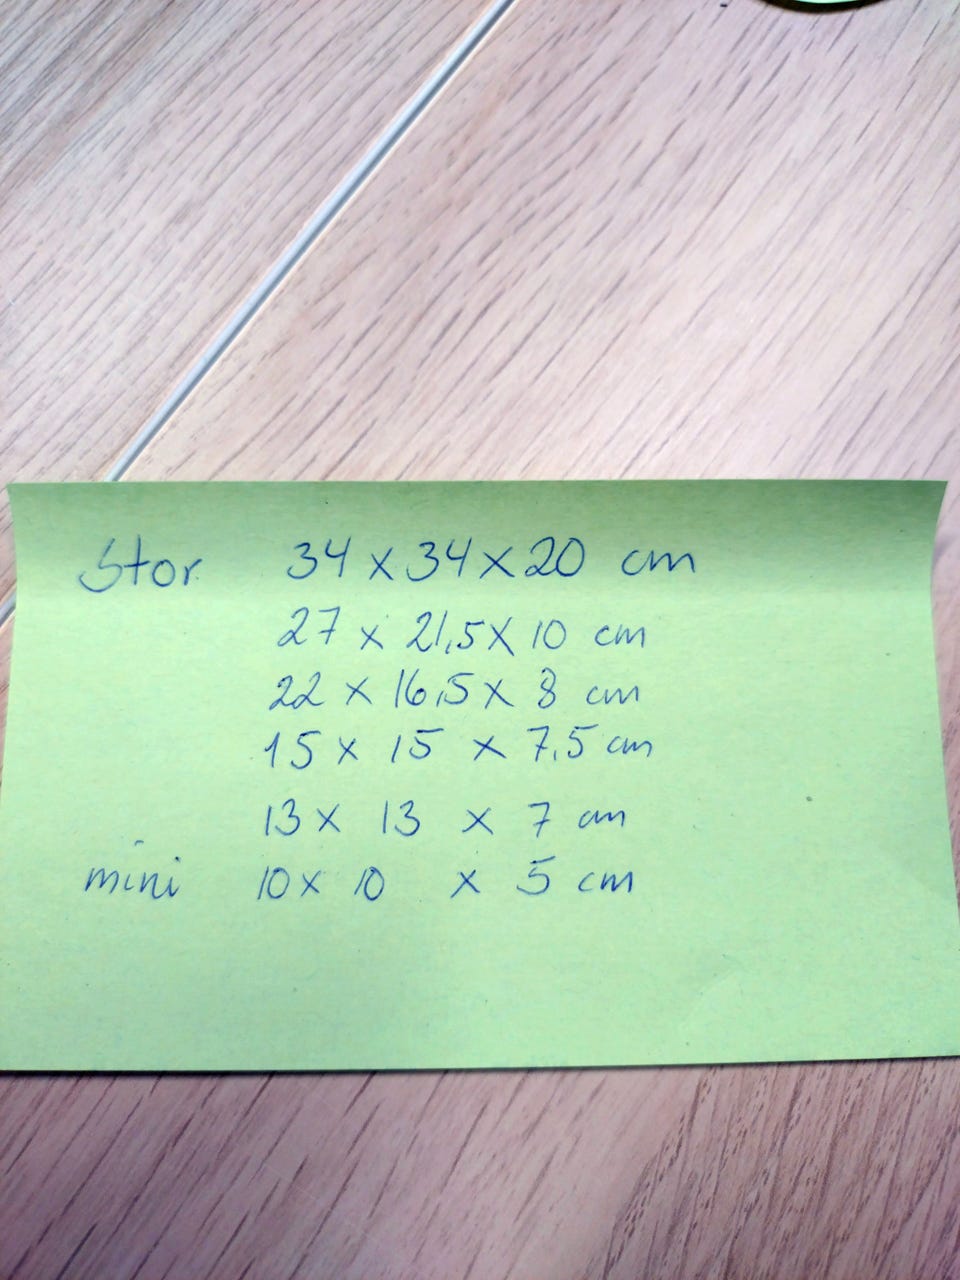 Stor 34 x 34 x 20 cm
27 x 21,5 x 10 cm
22 x 16,5 x 8 cm
15 x 15 x 7,5 cm
13 x 13 x 7 cm
mini 10 x 10 x 5 cm